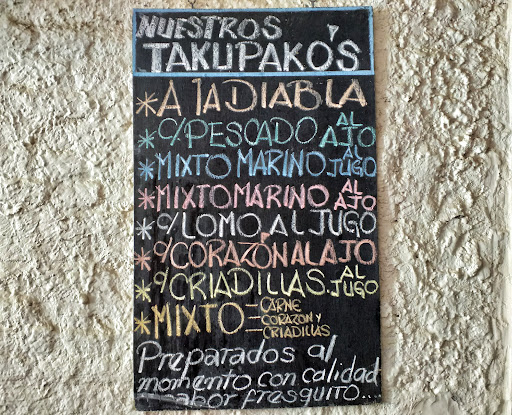 NUESTROS
TAKUPAKÓS
*A lA DIABLA
*C/PESCADO AL AJO
*MIXTO MARINO AL JUGO
*MIXTO MARINO AL AJO
*C/LOMO AL JUGO
*C/CORAZÓN AL AJO
*C/CRIADILLAS AL JUGO
*MIXTO - CARNE
- CORAZON Y
- CRIADILLAS
Preparados al
momento con calidad
sabor fresquito....